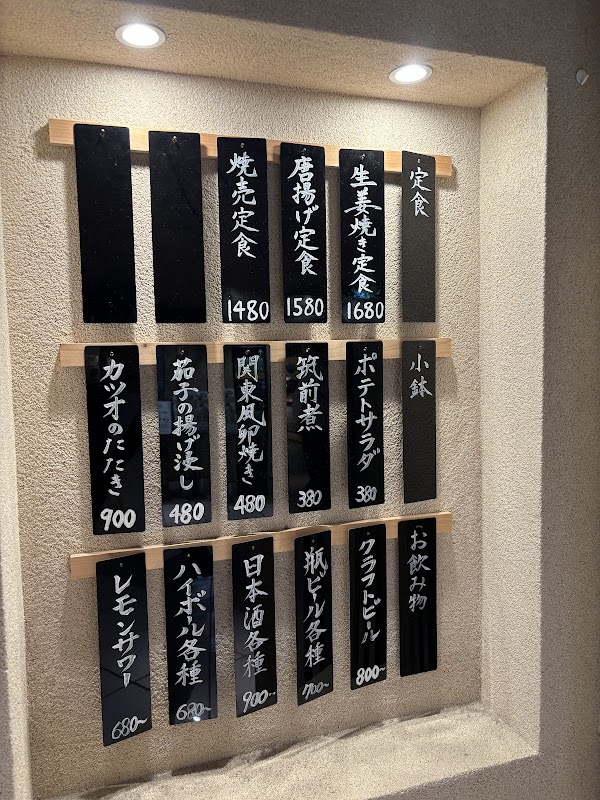 定食
生姜焼き定食
1680
唐揚げ定食
1580
焼売定食
1480
小鉢
ポテトサラダ
380
筑前煮
380
関東風卵焼き
480
茄子の揚げ浸し
480
カツオのたたき
900
お飲み物
クラフトビール
800~
瓶ビール各種
700~
日本酒各種
900~
ハイボール各種
680~
レモンサワー
680~